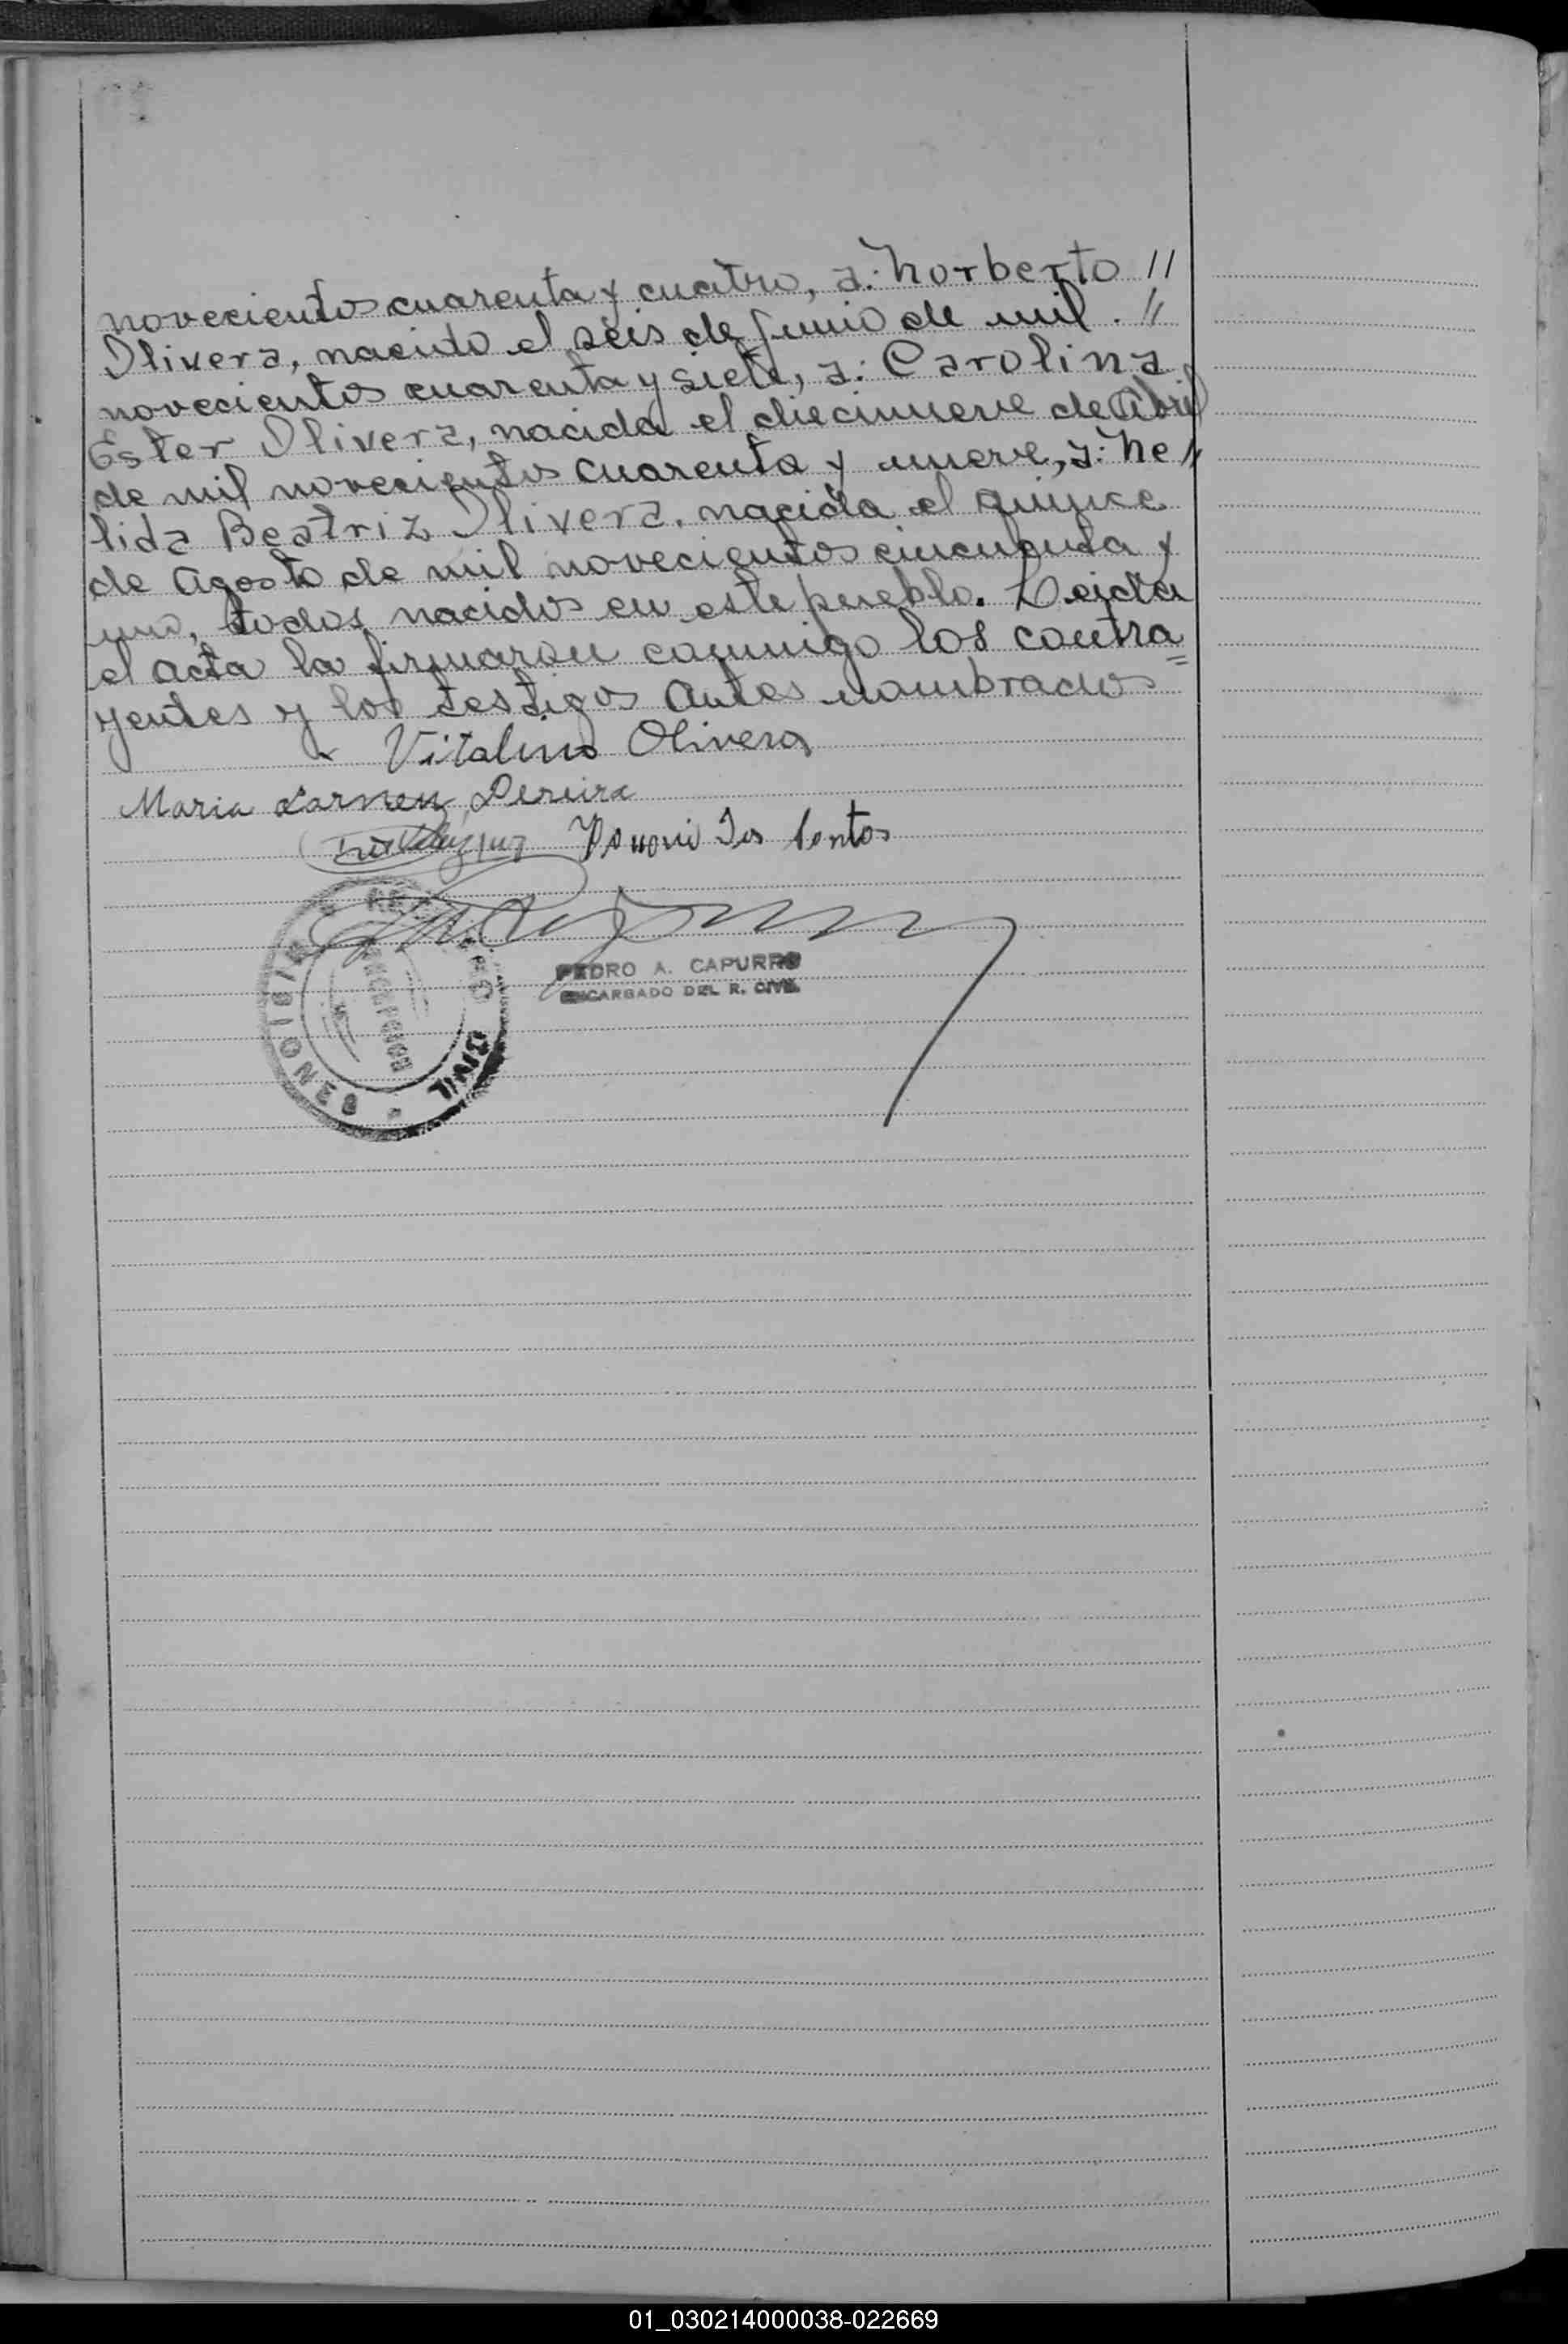 novecientos cuarenta y cuatro, a: Norberto //
Olivera, nacido el seis de Junio de mil . //
novecientos cuarenta y siete, a: Carolina
Ester Olivera, nacida el diecinueve de Abril
de mil novecientos cuarenta y nueve, a: Ne //
lida Beatriz Olivera, nacida el quince
de Agosto de mil novecientos cincuenta y
uno, todos nacidos en este pueblo. Leida
el acta la firmaron conmigo los contra=
yentes y los testigos antes nombrados
Vitalino Olivera
Maria Carmen Pereira
dos Santos
REGISTRO CIVIL
PEDRO A. CAPURRO
ENCARGADO DEL R. CIVIL
01_030214000038-022669